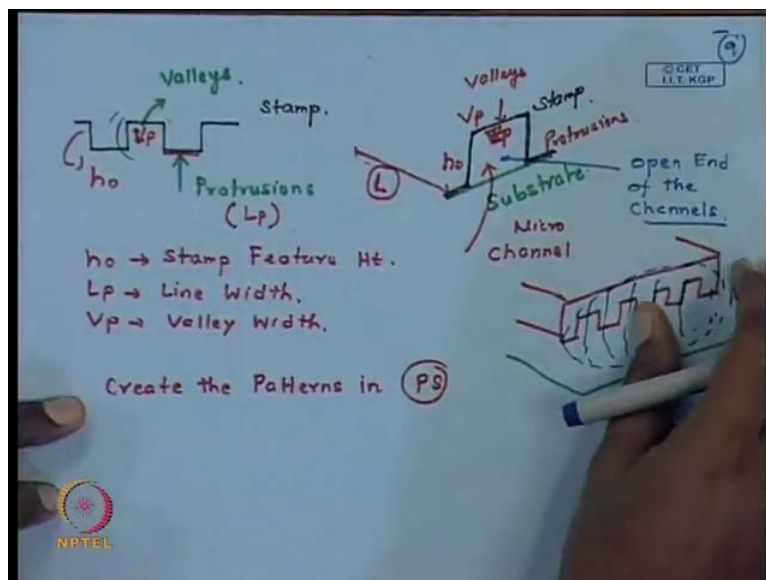 9
© CET
I.I.T. KGP
Valleys.
Stamp.
Vp
ho
Protrusions
(Lp)
Valleys
Vp
Stamp.
Protrusions
ho
L
Substrate
Micro
Channel
open End
of the
Channels.
ho → Stamp Feature Ht.
Lp → Line Width.
Vp → Valley Width.
Create the Patterns in PS
NPTEL